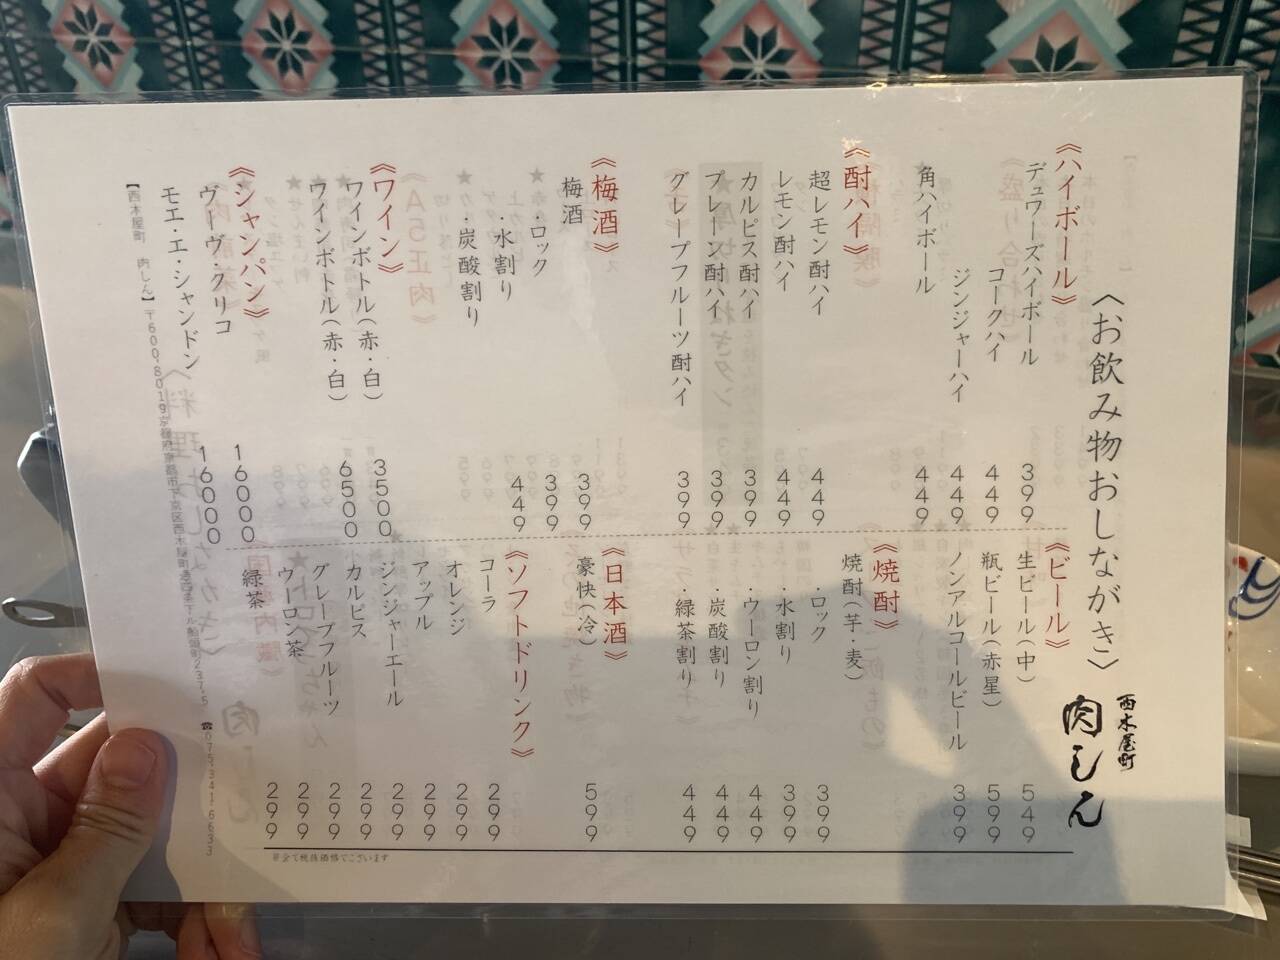 〈お飲み物おしながき〉
西木屋町
肉しん
《ハイボール》
デュワーズハイボール 399
コークハイ 449
ジンジャーハイ 449
角ハイボール 449
《酎ハイ》
超レモン酎ハイ 449
レモン酎ハイ 449
カルピス酎ハイ 399
プレーン酎ハイ 399
グレープフルーツ酎ハイ 399
《梅酒》
梅酒
・ロック 399
・水割り 399
・炭酸割り 449
《ワイン》
ワインボトル(赤・白) 3500
ワインボトル(赤・白) 6500
《シャンパン》
ヴーヴ・クリコ 16000
モエ・エ・シャンドン 16000
《ビール》
生ビール(中) 549
瓶ビール(赤星) 599
ノンアルコールビール 399
《焼酎》
焼酎(芋・麦)
・ロック 399
・水割り 399
・ウーロン割り 449
・炭酸割り 449
・緑茶割り 449
《日本酒》
豪快(冷) 599
《ソフトドリンク》
コーラ 299
オレンジ 299
アップル 299
ジンジャーエール 299
カルピス 299
グレープフルーツ 299
ウーロン茶 299
緑茶 299
※全て税抜価格でございます
【西木屋町 肉しん】〒600-8019京都府京都市下京区西木屋町通四条下ル船頭町237-5 ☎075-341-6633